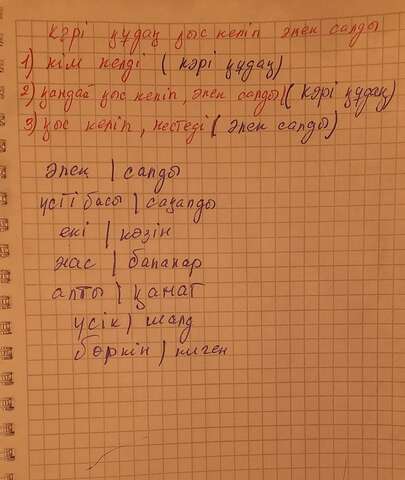 кәрі құдаң қыс келіп әлек салды
1) кім келді (кәрі құдаң)
2) қандай қыс келіп, әлек салды (кәрі құдаң)
3) қыс келіп, не істеді (әлек салды)
әлек | салды
үсті басы | сақалды
екі | көзін
жас | балалар
алты | қанат
үсік | шалд
бөркін | киген